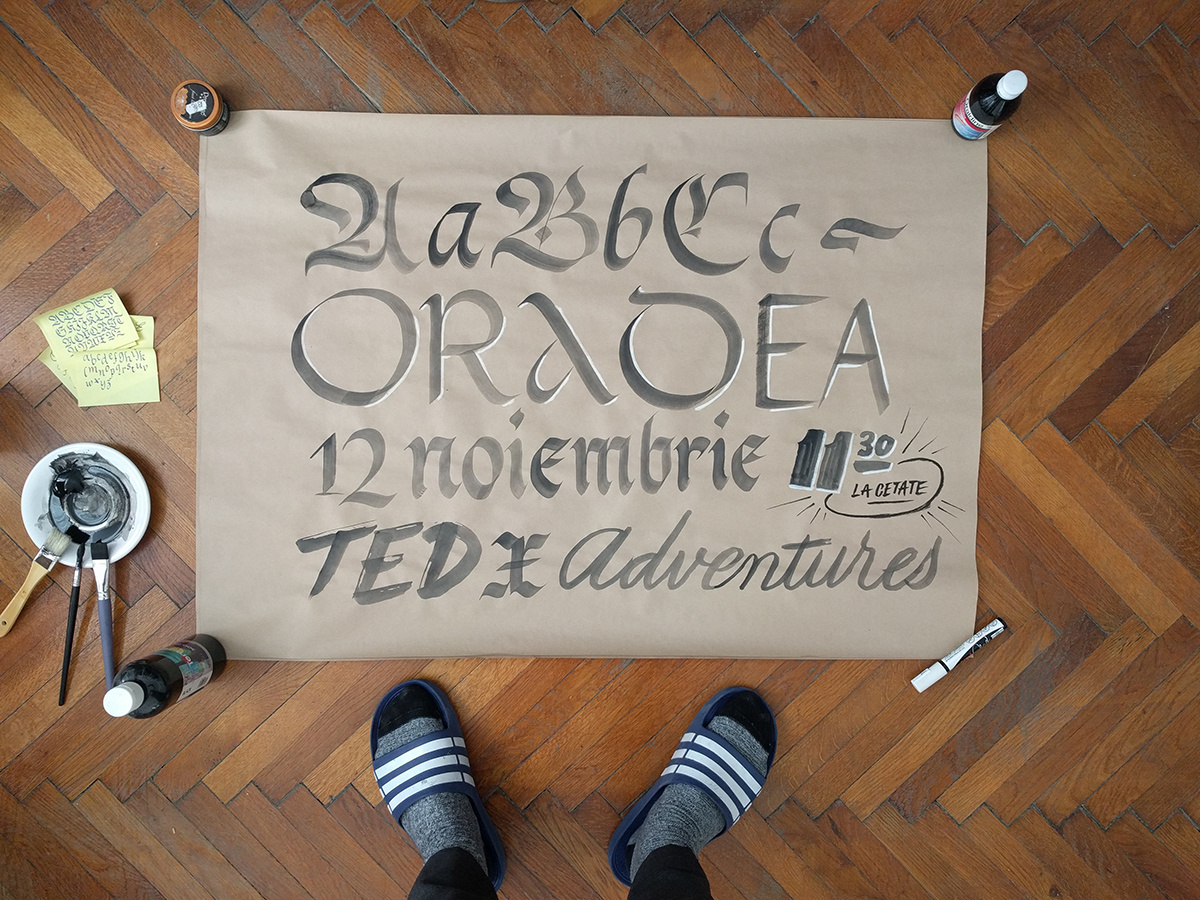 AaBbCc~
ORADEA
12 noiembrie 11 30
LA CETATE
TEDX Adventures